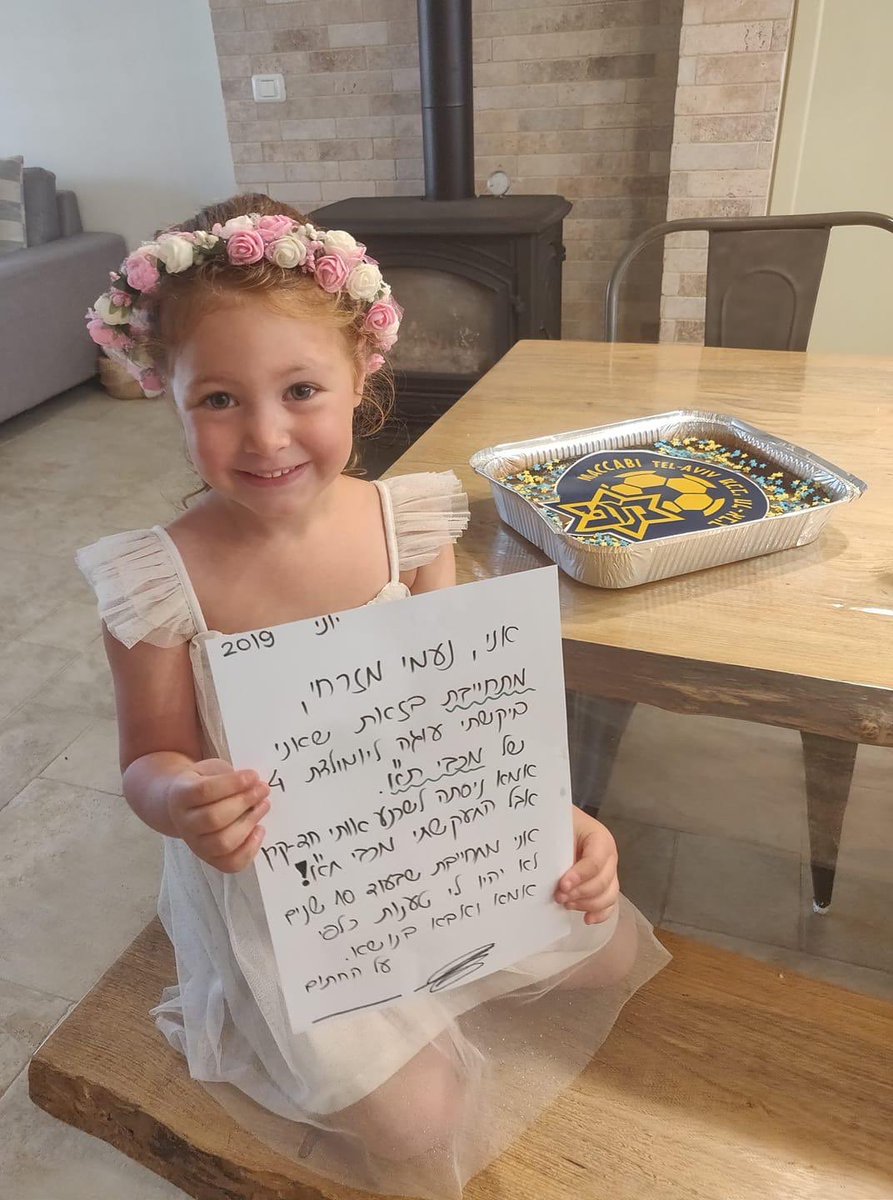 MACCABI TEL-AVIV מכבי תל-אביב
יוני 2019
אני, נעמי מזרחי,
מתחייבת בזאת שאני
ביקשתי עוגה ליומולדת 4
של מכבי ת"א.
אמא ניסתה לשכנע אותי חד-קרן
אבל התעקשתי מכבי ת"א!
אני מתחייבת שבעוד 10 שנים
לא יהיו לי טענות כלפי
אמא ואבא בנושא.
על החתום